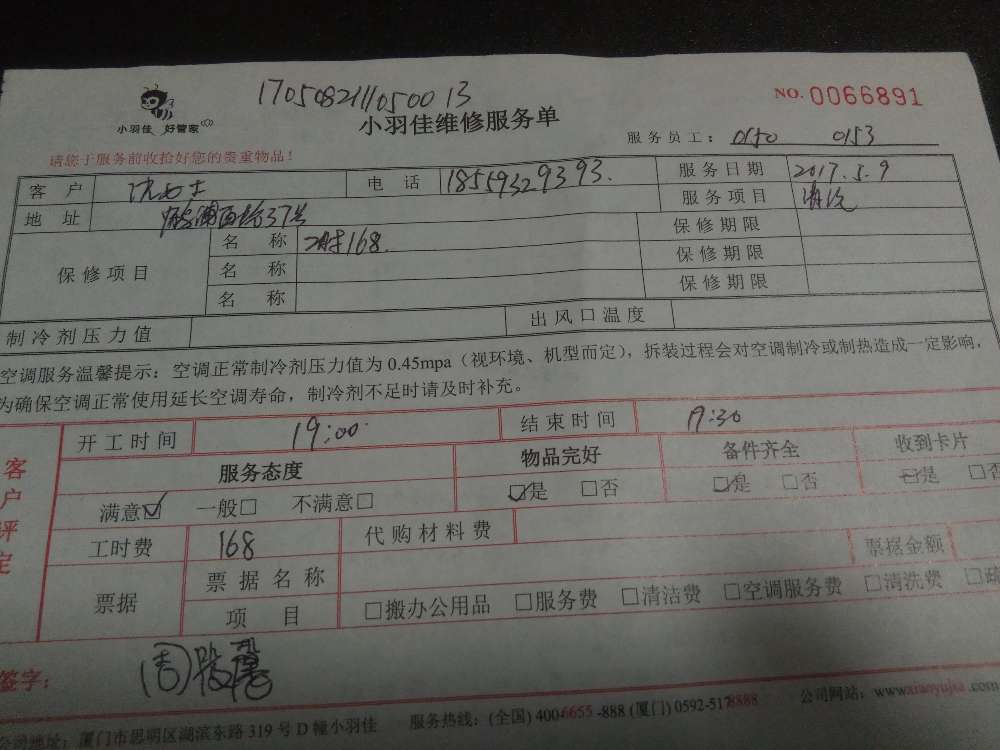 17050821110500 13
NO. 0066891
小羽佳 好管家
小羽佳维修服务单
服务员工： 0150 0153
请您于服务前收拾好您的贵重物品！
客户 沈女士 电话 18559329393. 服务日期 2017.5.9
地址 西路37号 服务项目 清洗
保修项目 名称 168. 保修期限
名称 保修期限
名称 保修期限
制冷剂压力值 出风口温度
空调服务温馨提示：空调正常制冷剂压力值为 0.45mpa（视环境、机型而定），拆装过程会对空调制冷或制热造成一定影响，
为确保空调正常使用延长空调寿命，制冷剂不足时请及时补充。
客户评定
开工时间 19:00 结束时间 19:30
服务态度 物品完好 备件齐全 收到卡片
满意☑ 一般□ 不满意□ ☑是 □否 ☑是 □否 ☑是 □否
工时费 168 代购材料费 票据金额
票据 票据名称
项目 □搬办公用品 □服务费 □清洁费 □空调服务费 □清洗费 □疏
签字：
公司地址：厦门市思明区湖滨东路 319 号 D 幢小羽佳 服务热线：(全国) 400-6655-888 (厦门) 0592-5178888 公司网站：www.xiaoyujia.com